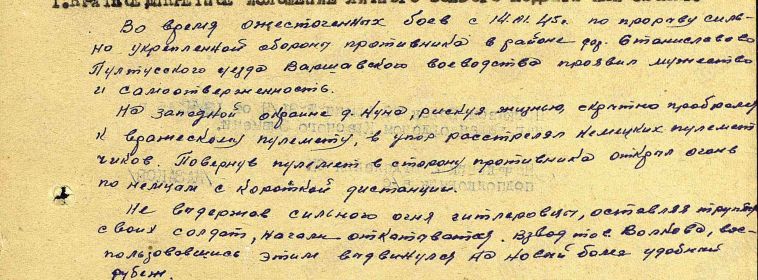 1. КРАТКОЕ, КОНКРЕТНОЕ ИЗЛОЖЕНИЕ ЛИЧНОГО БОЕВОГО ПОДВИГА ИЛИ ЗАСЛУГ
Во время ожесточенных боев с 14.01.45г. по прорыву силь-
но укрепленной обороны противника в районе фоз. Станиславово
Пултусского уезда Варшавского воеводства проявил мужество
и самоотверженность.
На западной окраине д. Нуна рискуя жизнью, скрытно пробрался
к вражескому пулемету, в упор расстрелял немецких пулемет
чиков. Повернув пулемет в сторону противника открыл огонь
по немцам с короткой дистанции.
Не выдержав сильного огня гитлеровцы, оставляя трупы
своих солдат, начали откатываться. Взвод тов. Волкова, вос-
пользовавшись этим выдвинулся на новый более удобный
рубеж.